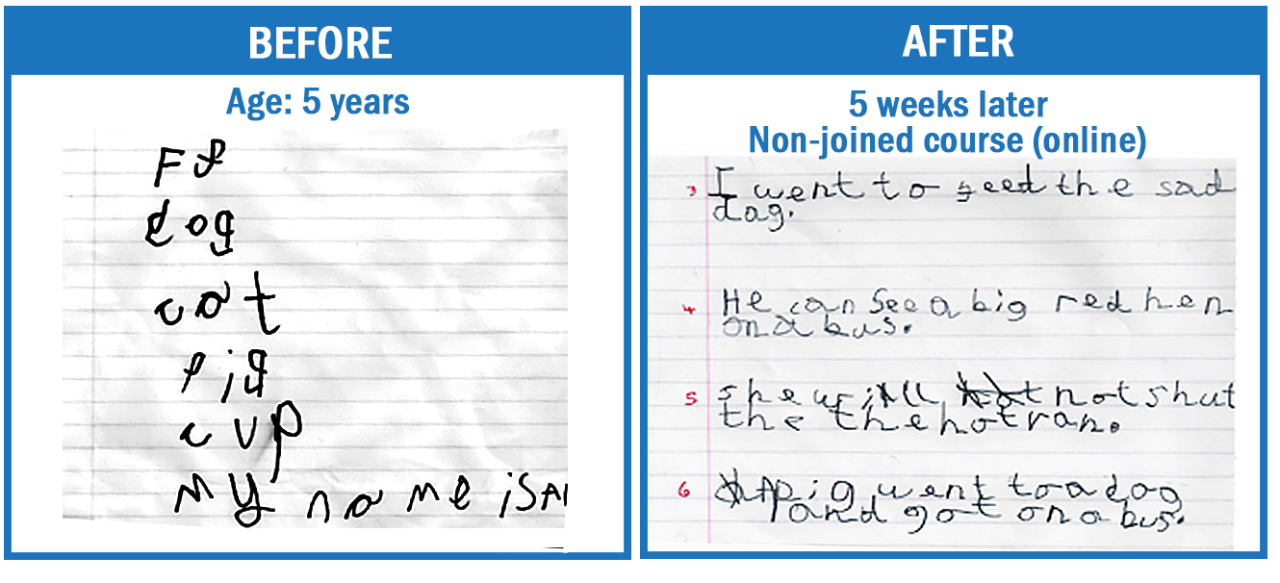 BEFORE
Age: 5 years
dog
cat
pig
cup
My name is
AFTER
5 weeks later
Non-joined course (online)
3 I went to feed the sad
dog.
4 He can See a big red hen
on a bus.
5 She will not shut
the the hot van.
6 A pig went to a dog
and got on a bus.